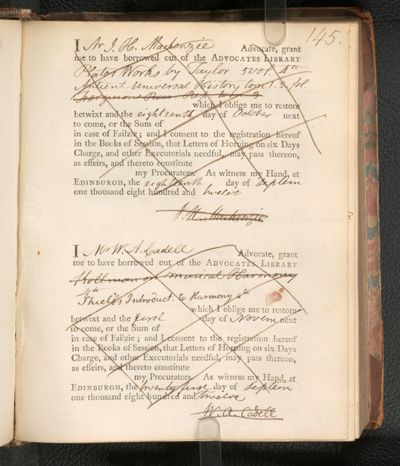 145.
I Mr J. H. Mackenzie Advocate, grant
me to have borrowed out of the ADVOCATES LIBRARY
Plato's Works by Taylor 5 vol. 4to
Antient Universal History, tom. 1. 2.
which I oblige me to restore
betwixt and the eighteenth day of October next
to come, or the Sum of
in case of Failzie; and I consent to the registration hereof
in the Books of Session, that Letters of Horning on six Days
Charge, and other Executorials needful, may pass thereon,
as effeirs, and thereto constitute
my Procurators. As witness my Hand, at
EDINBURGH, the eighteenth day of Septem
one thousand eight hundred and twelve
J. H. Mackenzie
I Mr W. A. Cadell Advocate, grant
me to have borrowed out of the ADVOCATES LIBRARY
Hollman on musical Harmony
4th Shield's Introduct. to Harmony 4to
which I oblige me to restore
betwixt and the first day of Novem next
to come, or the Sum of
in case of Failzie; and I consent to the registration hereof
in the Books of Session, that Letters of Horning on six Days
Charge, and other Executorials needful, may pass thereon,
as effeirs, and thereto constitute
my Procurators. As witness my Hand, at
EDINBURGH, the twenty first day of Septem
one thousand eight hundred and twelve
W. A. Cadell